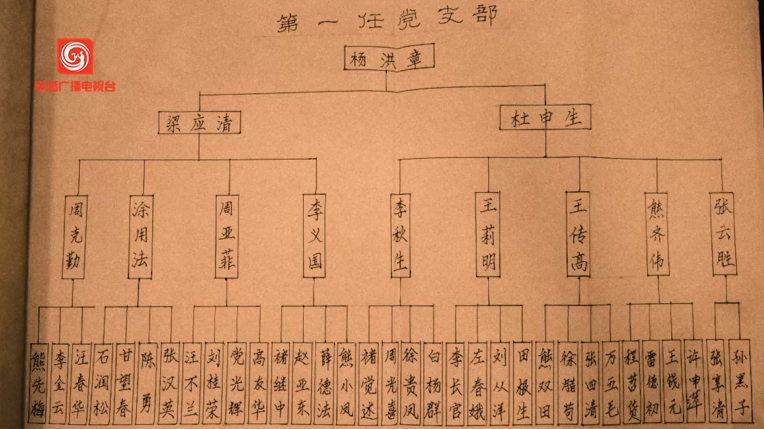 第一任党支部
广播电视台
杨洪章
梁应清
杜申生
周克勤
涂用法
周亚菲
李义国
李秋生
王莉明
王传高
熊齐伟
张云胜
熊先梅
李金云
汪春华
石润松
甘望春
陈勇
张汉英
汪不兰
刘桂荣
党光辉
高友华
褚继中
赵亚东
薛德法
熊小凤
褚觉述
周光喜
徐贵凤
白杨群
李长官
左春娥
刘从洋
田根生
熊双田
徐腊苟
张四清
万五毛
程苟货
雷德初
王钱元
许申萍
张享清
孙黑子